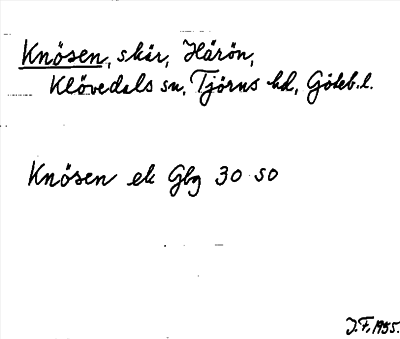 Knösen, skär, Härön,
Klövedals sn, Tjörns hd, Göteb. l.
Knösen ek Gbg 30 SO
J.F. 1955.